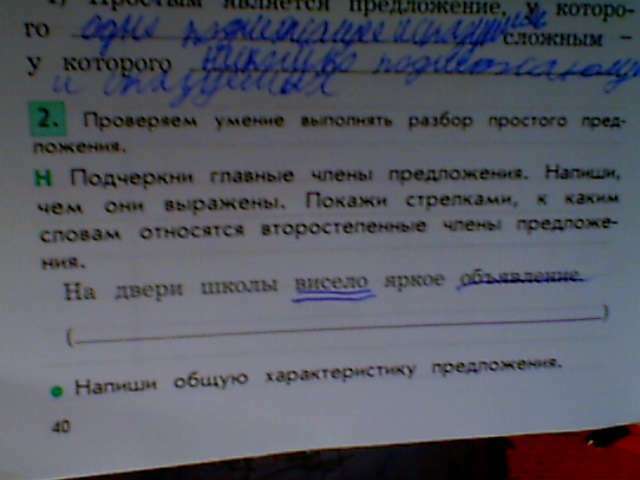 1) Простым является предложение, у которо-
го одно подлежащее и сказуемое сложным –
у которого несколько подлежащих
и сказуемых
2. Проверяем умение выполнять разбор простого пред-
ложения.
Н Подчеркни главные члены предложения. Напиши,
чем они выражены. Покажи стрелками, к каким
словам относятся второстепенные члены предложе-
ния.
На двери школы висело яркое объявление.
( )
• Напиши общую характеристику предложения.
40